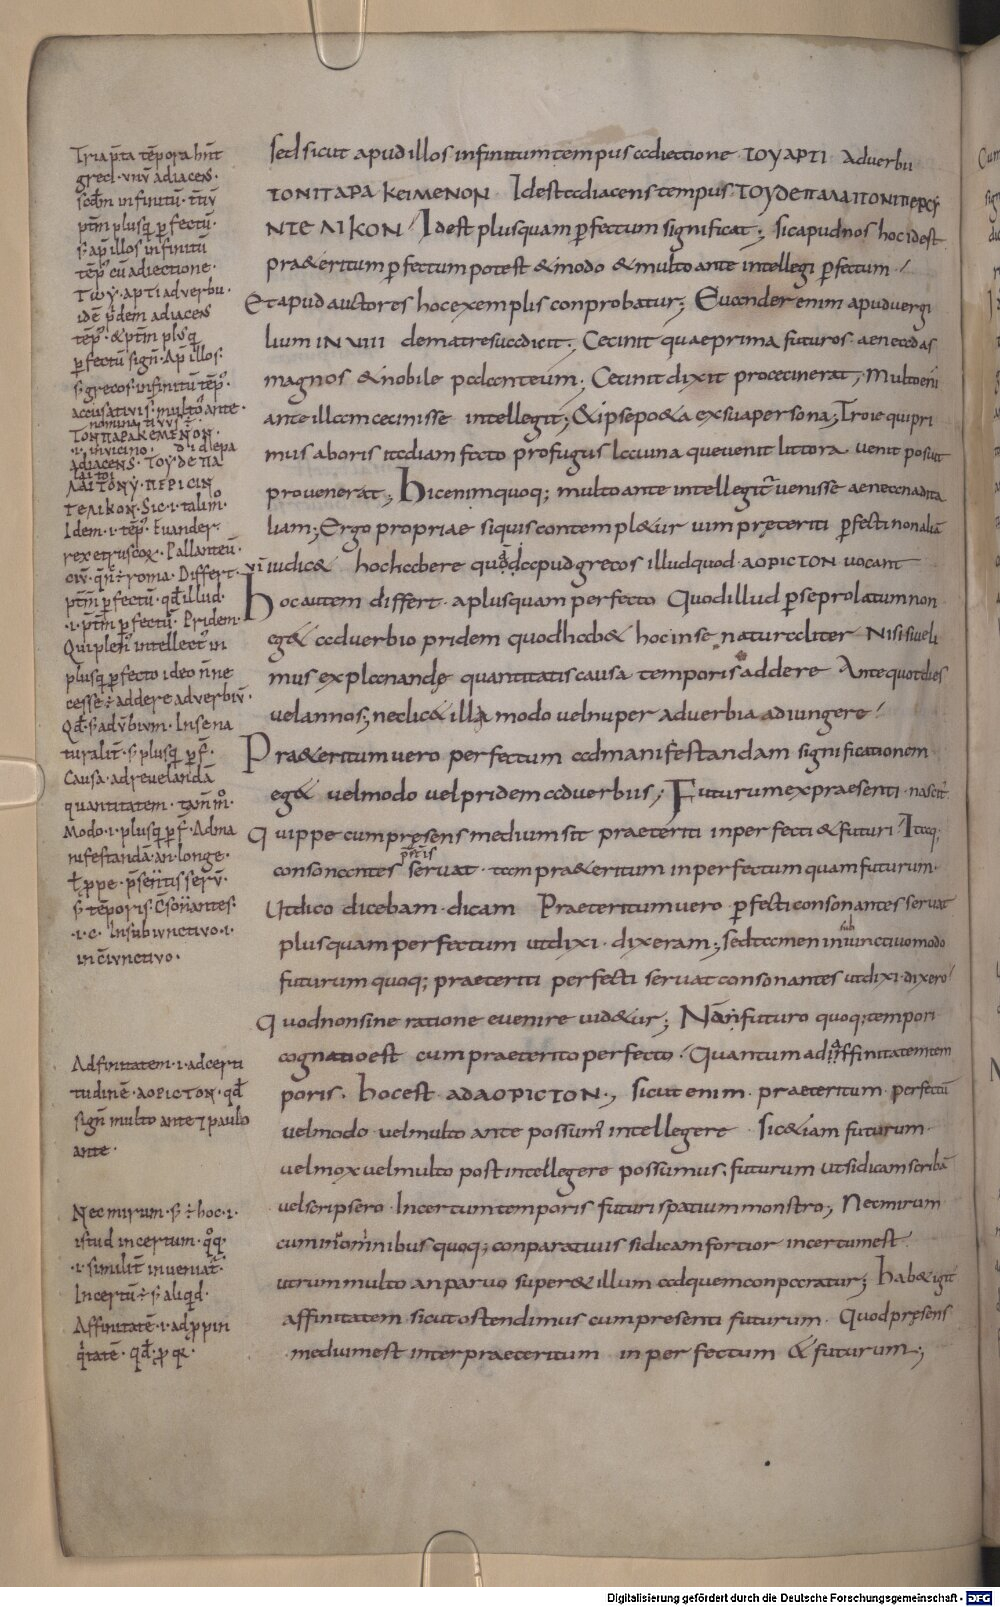 sed sicut apud illos infinitum tempus adiectione · ΤΟΥ ΑΡΤΙ adverbii
ΤΟΝ ΠΑΡΑ ΚΕΙΜΕΝΟΝ Id est adiacens tempus · ΤΟΥ ΔΕ ΠΑΛΑΙ ΤΟΝ ΠΕΡΣΥ
ΝΤΕΛΙΚΟΝ / Id est plusquam pfectum significat ; sic apud nos hoc idest
pra&eritum pfectum potest & modo & multo ante intellegi pfectum /
Et apud auctores hoc exemplis conprobatur ; Euander enim apud uergi
lium IN VIII de matre sua dicit ; Cecinit quae prima futuros · aeneadas
magnos & nobile pallanteum ; Cecinit dixit pro cecinerat , Multo eni
ante illam cecinisse intellegit ; & ipse po&a ex sua persona ; Troie qui pri
mus ab oris italiam fato profugus lauina que uenit littora · uenit posuit
pro uenerat , hic enim quoq; multo ante intellegit̄ uenisse aenean adita
liam ; Ergo propriae siquis contempl&ur uim pręteriti pfecti non aliā
iudic& hoc habere quā apud grecos illud quod · ΑΟΡΙCΤΟΝ uocant
hoc autem differt · a plusquam perfecto Quod illud p se prolatum non
eg& aduerbio pridem quod hab& hoc in se naturaliter Nisi si ueli
mus explanandę quantitatis causa temporis addere Ante quot dies
uel annos , nec lic& illi modo uel nuper aduerbia adiungere /
Pra&eritum uero perfectum ad manifestandam significationem
eg& uel modo uel pridem aduerbiis ; Futurum ex praesenti · nascit̄
Quippe cum pręsens medium sit praeteriti inperfecti & futuri / Itaq;
consonantes servat tam pra&eritum inperfectum quam futurum ·
Ut dico dicebam · dicam Praeteritum uero pfecti consonantes servat
plusquam perfectum ut dixi · dixeram ; sed tamen in iunctiuo modo
sub
futurum quoq; praeteriti perfecti servat consonantes ut dixi · dixero /
Quod non sine ratione euenire uid&ur ; Nā futuro quoq; tempori
cognatio est cum praeterito perfecto · Quantum ad infinitatem tem
poris · hoc est AD ΑΟΡΙCΤΟΝ · , sicut enim praeteritum perfectū
uel modo uel multo ante possum' intellegere sic &iam futurum ·
uel mox uel multo post intellegere possumus , futurum ut si dicam scribā
uel scripsero Incertum temporis futuri spatium monstro , Nec mirum
cum in omnibus quoq; conparatiuis si dicam fortior incertum est
utrum multo an paruo super& illum ad quem conparatur ; hab& igit̄
affinitatem sicut ostendimus cum presenti futurum Quod pręsens
medium est inter praeteritum inperfectum & futurum ;
Tria p̄ta tēpora hn̄t
greci · unū adiacens ·
scd̄m infinitū · t̄tiū
pt̄m plusq̄ pfectū ·
s · ap̄ illos infinitū
tēp' cū adiectione ·
Τωγ · ΑΡΤΙ adverbii ·
idē p̄dem adiacens
tēp' · & pt̄m plusq̄
pfectū sign̄ · Ap̄ illos ·
s grecos · infinitū tēp' ·
accusativis · multo ante ·
ΤΟΝ ΠΑΡΑΚΕΜΕΝΟΝ ·
· i · in vicino ·
adiacens · ΤΟΥ ΔΕ ΠΑ
ΛΑΙΤΟΝΥ · ΠΕΡΙCΙΝ
ΤΕΛΙΚΟΝ · Sic · i · talim° ·
Idem · i · tēp' · Euander ·
rex etruscoꝝ · Pallanteū ·
roma · Differt ·
pt̄m pfectū · qd̄ illud ·
· i · pt̄m pfectū · Pridem ·
intellect' in
plusq̄ pfecto ideo n̄ ne
cesse ÷ addere adverbiū ·
Qd̄ · s adv̄bium · In se na
turalit̄ · s plusq̄ pf̄ ·
Causa · ad revelandā
quantitatem · tam̄ m° ·
Modo · i · plusq̄ pf̄ · Adma
nifestandā · an longe ·
p̄sentis serv̄ ·
s tēporis · C̄sonantes ·
· i · c · In subiunctivo · i ·
in c̄iunctivo ·
Adfinitatem · i · ad certi
tudinē · ΑΟΡΙCΤΟΝ · qd̄
sign̄ multo ante ⁊ paulo
ante ·
Nec mirum · s ÷ hoc · i ·
istud incertum · q°q̄ ·
· i · similit̄ inveniat̄ ·
Incertū ÷ s aliqid ·
Affinitatē · i · adppin
q̄tatē ·
Digitalisierung gefördert durch die Deutsche Forschungsgemeinschaft - DFG